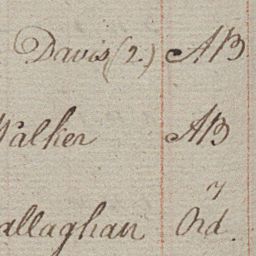 Davis (2.) AB
Walker AB
allaghan Ord.